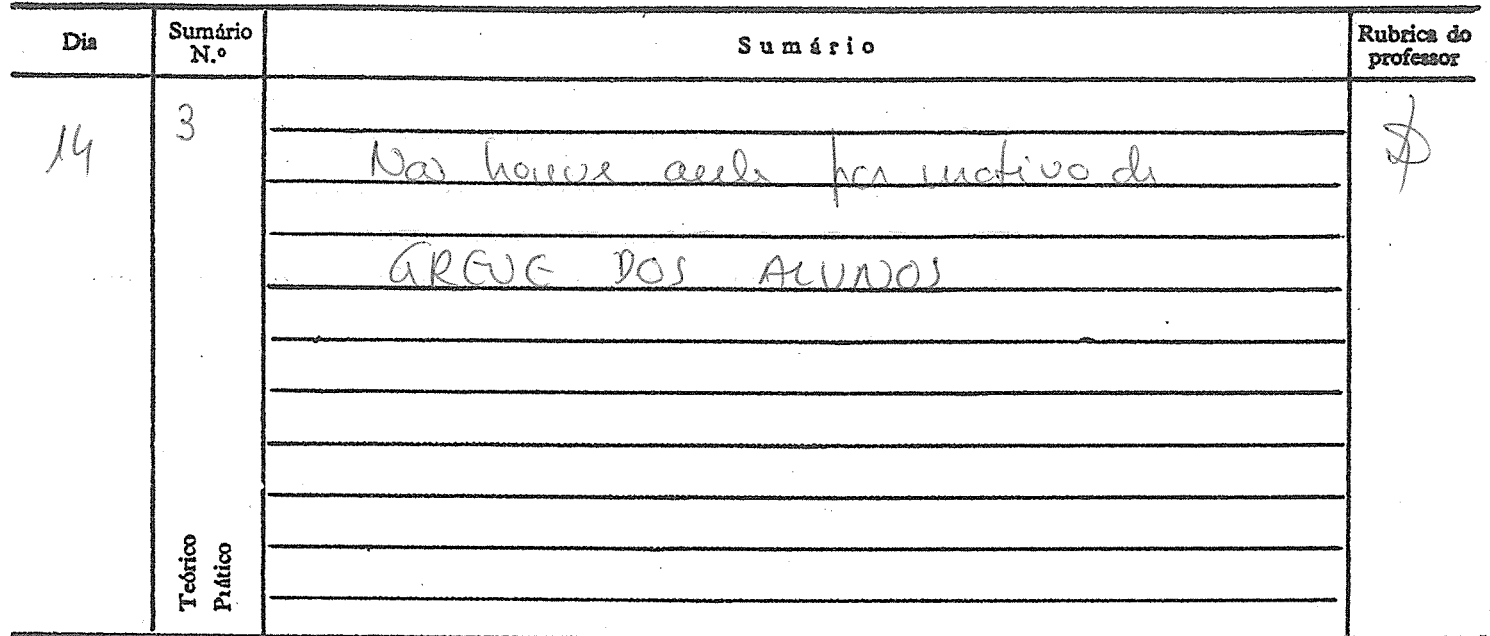 Dia Sumário N.º Sumário Rubrica do professor
14 3
Não houve aula por motivo de
GREVE DOS ALUNOS
Teórico
Prático